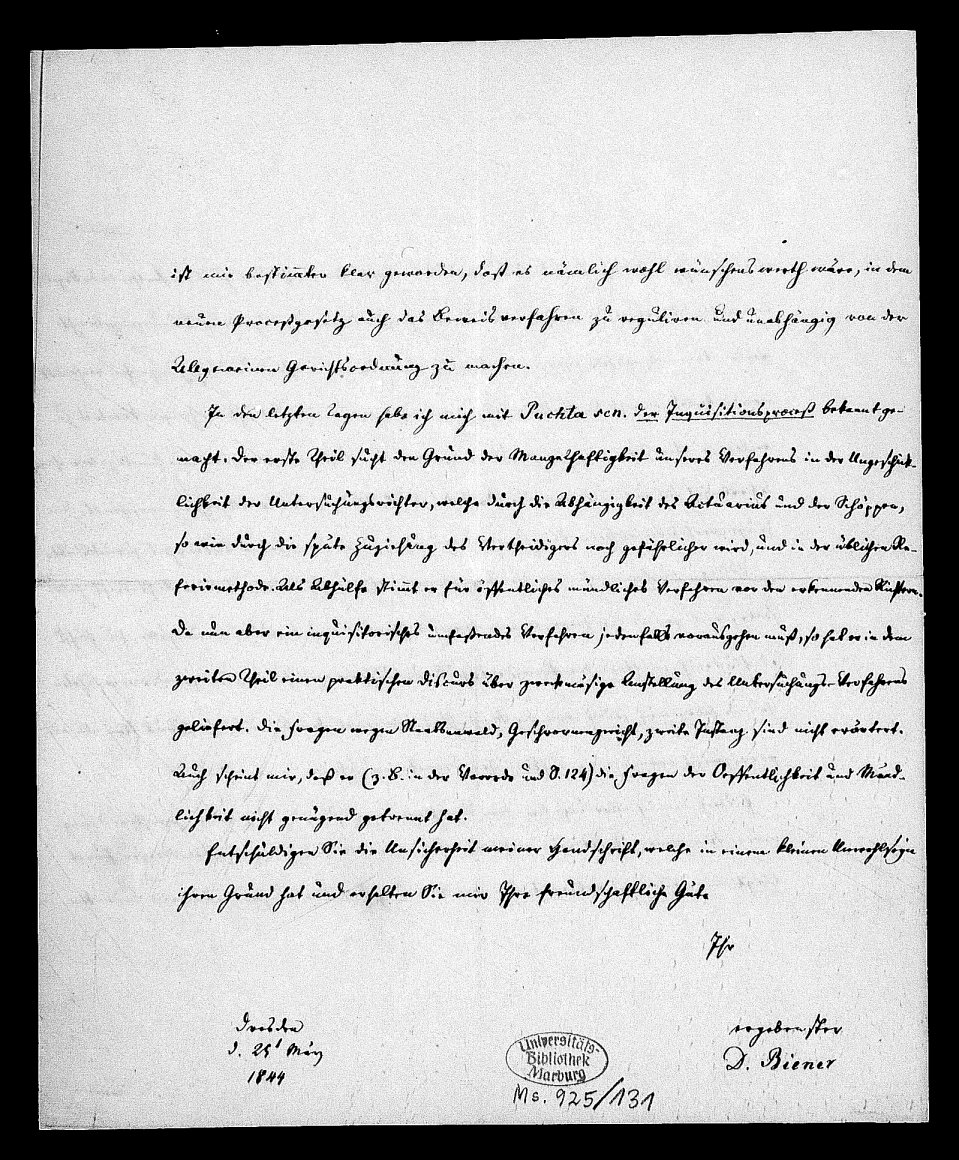 ist mir bestimmter klar geworden, daß es nämlich wohl wünschenswerth wäre, in dem
neuen Proceßgesetz auch das Beweisverfahren zu reguliren und unabhängig von der
Allgemeinen Gerichtsordnung zu machen.
In den letzten Tagen habe ich mich mit Puchta sen. der Inquisitionsproceß bekannt ge-
macht. Der erste Theil sucht den Grund der Mangelhaftigkeit unseres Verfahrens in der Ungeschick-
lichkeit der Untersuchungsrichter, welche durch die Abhängigkeit des Actuarius und der Schöppen,
so wie durch die späte Zuziehung des Vertheidigers noch gefährlicher wird, und in der üblichen Re-
feriermethode. Als Abhülfe stimmt er für öffentliches mündliches Verfahren vor den erkennenden Richtern.
Da nun aber ein inquisitorisches umfaßendes Verfahren jedenfalls vorausgehen muß, so hat er in dem
zweiten Theil einen praktischen Discurs über zweckmäsige Anstellung des Untersuchungs-Verfahrens
geliefert. Die Fragen wegen Staatsanwald, Geschwornengericht, zweite Instanz sind nicht erörtert.
Auch scheint mir, daß er (z. B. in der Vorrede und S. 124) die Fragen der Oeffentlichkeit und Münd-
lichkeit nicht genügend getrennt hat.
Entschuldigen Sie die Unsicherheit meiner Handschrift, welche in einem kleinen Unwohlseyn
ihren Grund hat und erhalten Sie mir Ihre freundschaftliche Güte
Ihr
Dresden
d. 25t März
1844
ergebenster
D. Biener
Universitäts-
Bibliothek
Marburg
Ms. 925/131